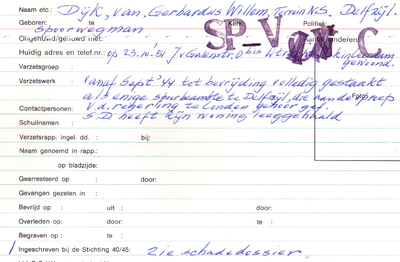 Naam etc.: Dijk, van, Gerbardus Willem, Terrein N.S. Delfzijl.
Geboren: te Kerk: Politiek:
spoorwegman
Ongehuwd/gehuwd met: kinderen:
SP-V C
Huidig adres en telef.nr.: op 23-10-'51 J v Galenstr. 0 bis Utr
gewoond.
Verzetsgroep :
Verzetswerk : Vanaf Sept '44 tot bevrijding volledig gestaakt
als enige spoorbeambte te Delfzijl, die aan de oproep
Foto
Contactpersonen: v.d. regering te Londen gehoor gaf.
Schuilnamen : S D heeft zijn woning leeggehaald
Verzetsrapp. ingel. dd. : bij:
Naam genoemd in rapp.:
op bladzijde:
Gearresteerd op : door:
Gevangen gezeten in :
Bevrijd op : uit : door:
Overleden op: door: te :
Begraven op : te :
Ingeschreven bij de Stichting 40/45: zie schadedossier,